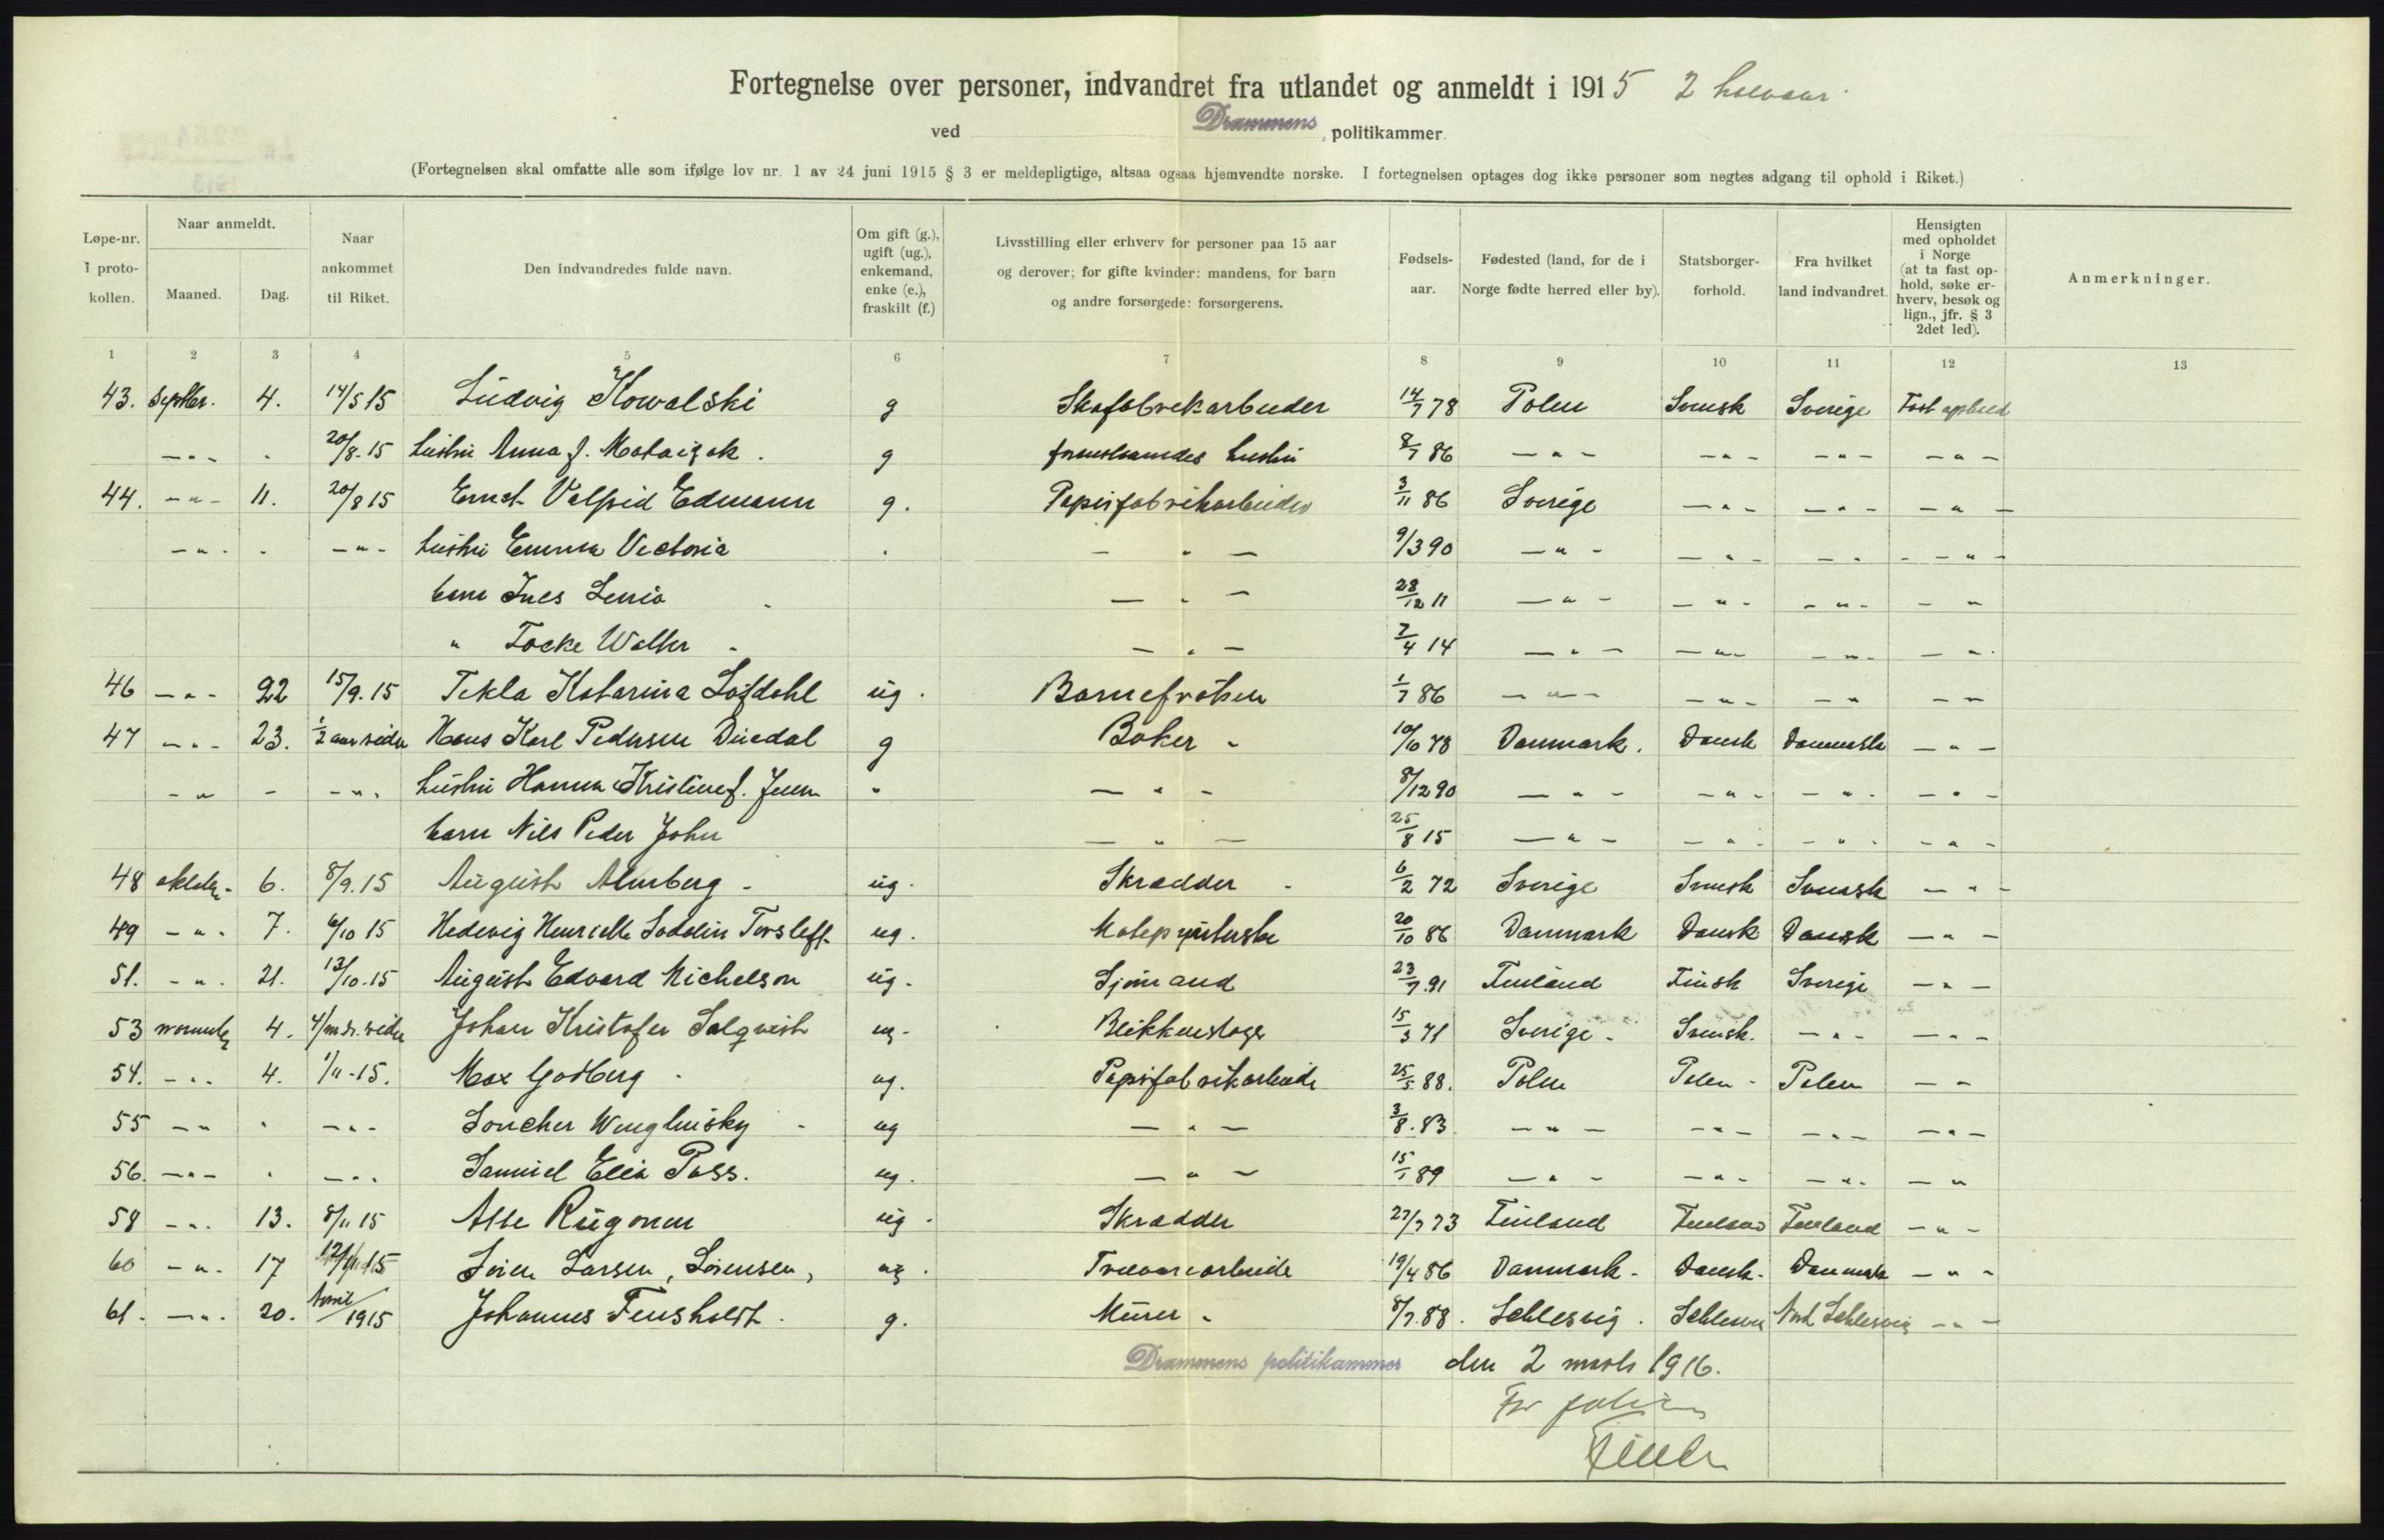 Fortegnelse over personer, indvandret fra utlandet og anmeldt i 1915 2 halvaar.
ved Drammens politikammer.
(Fortegnelsen skal omfatte alle som ifølge lov nr. 1 av 24 juni 1915 § 3 er meldepligtige, altsaa ogsaa hjemvendte norske. I fortegnelsen optages dog ikke personer som negtes adgang til ophold i Riket.)
Løpe-nr. i proto-kollen. Naar anmeldt. Maaned. Dag. Naar ankommet til Riket. Den indvandredes fulde navn. Om gift (g.), ugift (ug.), enkemand, enke (e.), fraskilt (f.) Livsstilling eller erhverv for personer paa 15 aar og derover; for gifte kvinder: mandens, for barn og andre forsørgede: forsørgerens. Fødsels-aar. Fødested (land, for de i Norge fødte herred eller by). Statsborger-forhold. Fra hvilket land indvandret. Hensigten med opholdet i Norge (at ta fast op-hold, søke er-hverv, besøk og lign., jfr. § 3 2det led). Anmerkninger.
1 2 3 4 5 6 7 8 9 10 11 12 13
43. Septbr. 4. 14/5 15 Ludvig Kowalski g Skofabrekarbeider 14/7 78 Polen Svensk Sverige Fast ophold
-"- . 20/8-15 hustru Anna f. g hustru 8/7 86 -"- -"- -"- -"-
44. -"- 11. 20/8 15 Ernst Valfrid Edmann g. Papirfabrikarbeider 3/11 86 Sverige -"- -"- -"-
-"- . -"- hustru Emma Victoria . -"- 9/3 90 -"- -"- -"- -"-
barn Ines -"- 28/12 11 -"- -"- -"- -"-
" Tocke Walter -"- 7/4 14 -"- -"- -"- -"-
46 -"- 22 15/9.15 Tekla Katarina Löfdahl ug. Barnefrøken 1/7 86 -"- -"- -"- -"-
47 -"- 23. 1/2 aar siden Hans Karl Pedersen g Baker 10/10 78 Danmark. Dansk Danmark -"-
-"- - -"- hustru Hanna Kristine f. " -"- 8/12 90 -"- -"- -"- -"-
barn Nils Peder John -"- 25/8 15 -"- -"- -"- -"-
48 oktober 6. 8/9.15 August Almberg ug. Skrædder 6/2 72 Sverige Svensk Svensk -"-
49 -"- 7. 6/10 15 Hedevig Henriette ug. 20/10 86 Danmark Dansk Dansk -"-
51. -"- 21. 13/10.15 August Edvard Michelson ug. Sjømand 23/7.91 Finland Finsk Sverige -"-
53 4. siden Johan Kristofer Salqvist ug. Blikkenslager 15/3 71 Sverige Svensk. -"- -"-
54. -"- 4. 1/11-15. Max Godberg ug. Papirfabrikarbeide 25/5 88. Polen Polen Polen -"-
55 -"- . -"- Wenglinsky ug -"- 3/8.83 -"- -"- -"- -"-
56. -"- . -"- Samuel Elia Pass. ug. -"- 15/1 89 -"- -"- -"- -"-
58 -"- 13. 8/11 15 Rugonen ug. Skrædder 27/7 73 Finland Finland Finland -"-
60 -"- 17 12/11 15 Sören Larsen, Sörensen, ug. Trævarearbeide 19/4 86 Danmark Dansk. Danmark -"-
61. -"- 20. April/1915 Johannes Fensholdt. g. Murer 8/7.88. Schlesvig. Nord Schlesvig -"-
Drammens politikammer den 2 marts 1916.
For politim